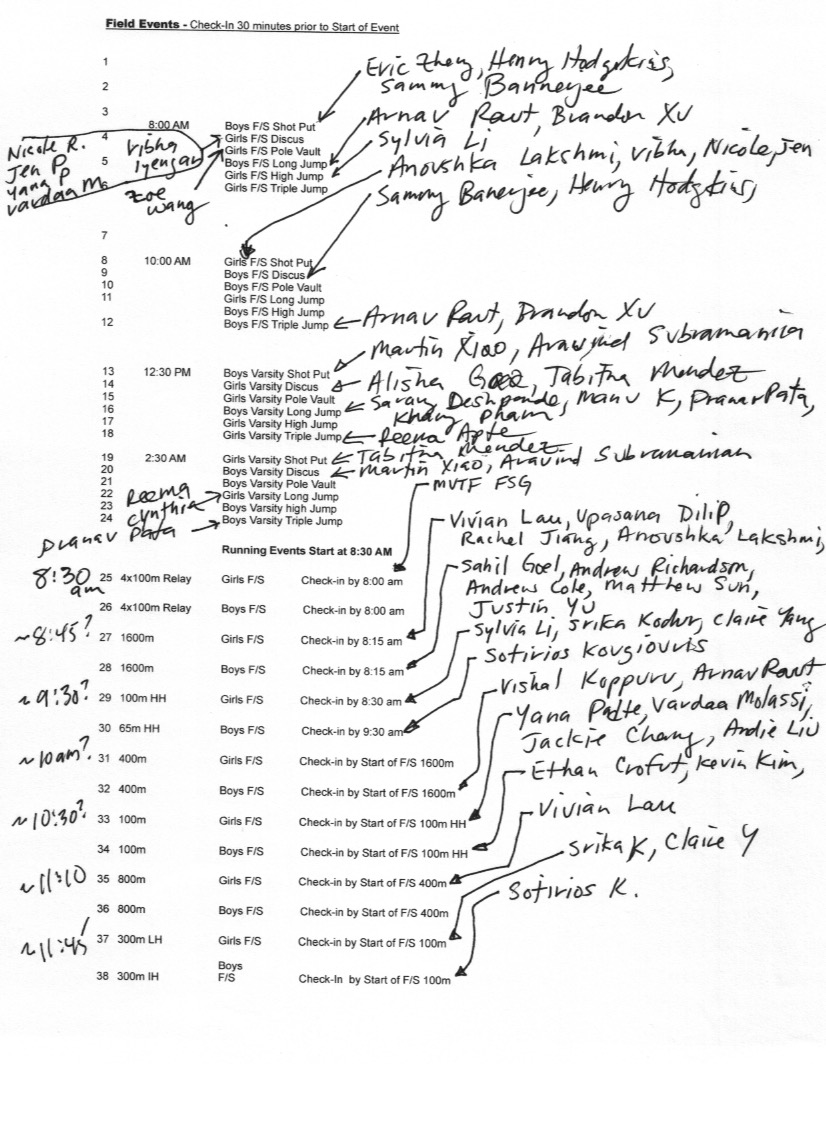 Field Events - Check-In 30 minutes prior to Start of Event
1
Eric Zheng, Henry Hodgkins,
2
Sammy Bannerjee
3
8:00 AM Boys F/S Shot Put
Arnav Raut, Brandon Xu
4 Girls F/S Discus
Sylvia Li
Nicole R.
Jen P.
Yana P
Vardaa M.
Vibha
Iyengar
Zoe
Wang
Girls F/S Pole Vault
5 Boys F/S Long Jump
Anoushka Lakshmi, Vibha, Nicole, Jen
Girls F/S High Jump
6 Girls F/S Triple Jump
Sammy Banerjee, Henry Hodgkins,
7
8 10:00 AM Girls F/S Shot Put
9 Boys F/S Discus
10 Boys F/S Pole Vault
11 Girls F/S Long Jump
Boys F/S High Jump
12 Boys F/S Triple Jump
Arnav Raut, Brandon Xu
Martin Xiao, Aravind Subramania
13 12:30 PM Boys Varsity Shot Put
14 Girls Varsity Discus
Alisha Goel, Tabitha Mendez
15 Girls Varsity Pole Vault
16 Boys Varsity Long Jump
Saran Deshpande, Manu K, Pranav Pata,
Khang Pham
17 Girls Varsity High Jump
18 Girls Varsity Triple Jump
Reema Apte
19 2:30 AM Girls Varsity Shot Put
Tabitha Mendez
20 Boys Varsity Discus
Martin Xiao, Aravind Subramanian
21 Boys Varsity Pole Vault
MVTF FSG
22 Girls Varsity Long Jump
Reema
Cynthia
23 Boys Varsity high Jump
24 Boys Varsity Triple Jump
Pranav Pata
Vivian Lau, Upasana Dilip,
Rachel Jiang, Anoushka Lakshmi,
Running Events Start at 8:30 AM
8:30 am
25 4x100m Relay Girls F/S Check-in by 8:00 am
Sahil Goel, Andrew Richardson,
Andrew Cole, Matthew Sun,
Justin Yu
26 4x100m Relay Boys F/S Check-in by 8:00 am
~8:45?
27 1600m Girls F/S Check-in by 8:15 am
Sylvia Li, Srika Kodur, Claire Yang
28 1600m Boys F/S Check-in by 8:15 am
Sotirios Kougiouris
~9:30?
29 100m HH Girls F/S Check-in by 8:30 am
Vishal Koppuru, Arnav Raut
30 65m HH Boys F/S Check-in by 9:30 am
Yana Patte, Vardaa Molassi,
Jackie Chang, Andie Liu
~10am?
31 400m Girls F/S Check-in by Start of F/S 1600m
Ethan Crofut, Kevin Kim,
32 400m Boys F/S Check-in by Start of F/S 1600m
~10:30?
33 100m Girls F/S Check-in by Start of F/S 100m HH
Vivian Lau
34 100m Boys F/S Check-in by Start of F/S 100m HH
Srika K, Claire Y
~11:10
35 800m Girls F/S Check-in by Start of F/S 400m
Sotirios K.
36 800m Boys F/S Check-in by Start of F/S 400m
~11:45
37 300m LH Girls F/S Check-in by Start of F/S 100m
38 300m IH Boys F/S Check-In by Start of F/S 100m